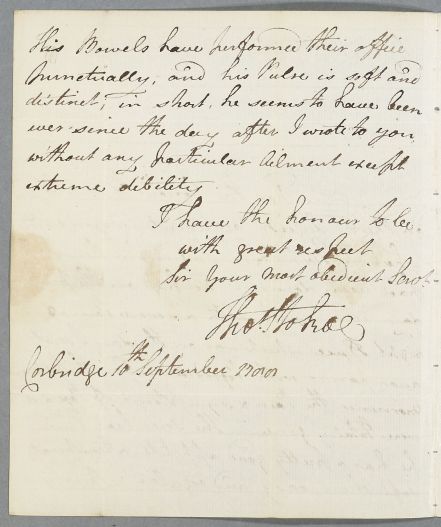 His Bowels have performed their office
punctually, and his Pulse is soft and
distinct; in short, he seems to have been
ever since the day after I wrote to you,
without any particular ailment except
extreme debility.
I have the honour to be
with great respect
Sir Your most obedient Servt
Thos.
Corbridge 10th September